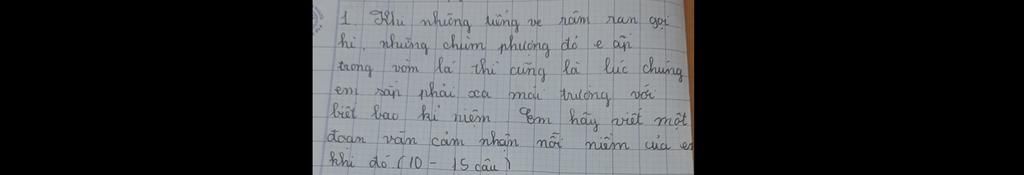 1. Khi những tiếng ve râm ran gọi
hè, những chùm phượng đỏ e ấp
trong vòm lá thì cũng là lúc chúng
em sắp phải xa mái trường với
biết bao kỉ niệm Em hãy viết một
đoạn văn cảm nhận nỗi niềm của em
khi đó (10 - 15 câu)